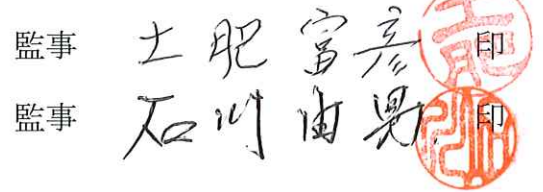 監事 土肥富彦 印
監事 石川由 印